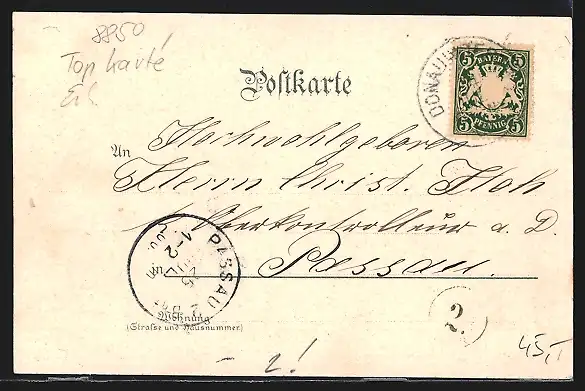 8850
Top Karte
Postkarte
DONAU
BAYERN
5 5
5 5
PFENNIG
An Hochwohlgeboren
Herrn Christ. Hoh
k. Oberkontrolleur a. D.
in Passau.
PASSAU
1-2
Wohnung
(Strasse und Hausnummer)
2.
- 2!
45,-